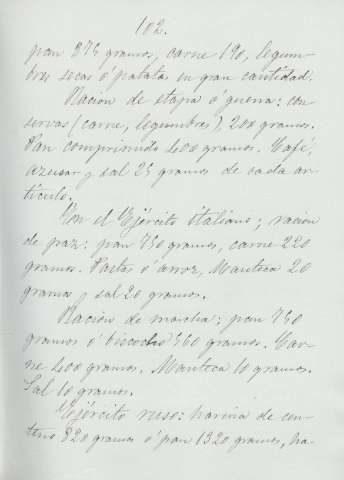 102.
pan 875 gramos, carne 190, legum-
bres secas ó patata en gran cantidad.
Racion de etapa ó guerra: con-
servas (carne, legumbres), 200 gramos.
Pan comprimido 400 gramos. Café,
azucar y sal 25 gramos de cada ar-
tículo.
Con el Ejército italiano; racion
de paz: pan 750 gramos, carne 220
gramos. Pastas ó arroz, Manteca 20
gramos y sal 20 gramos.
Racion de marcha: pan 750
gramos ó biscocho 560 gramos. Car-
ne 400 gramos. Manteca 10 gramos.
Sal 10 gramos.
Ejército ruso: harina de cen-
teno 820 gramos ó pan 1320 gramos, ha-